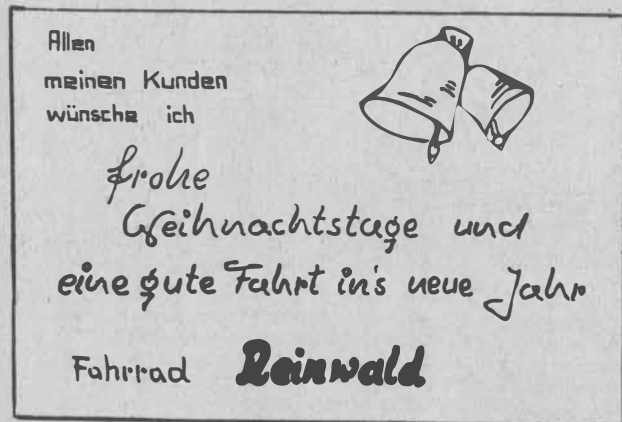 Allen
meinen Kunden
wünsche ich
frohe
Weihnachtstage und
eine gute Fahrt in's neue Jahr
Fahrrad Reinwald